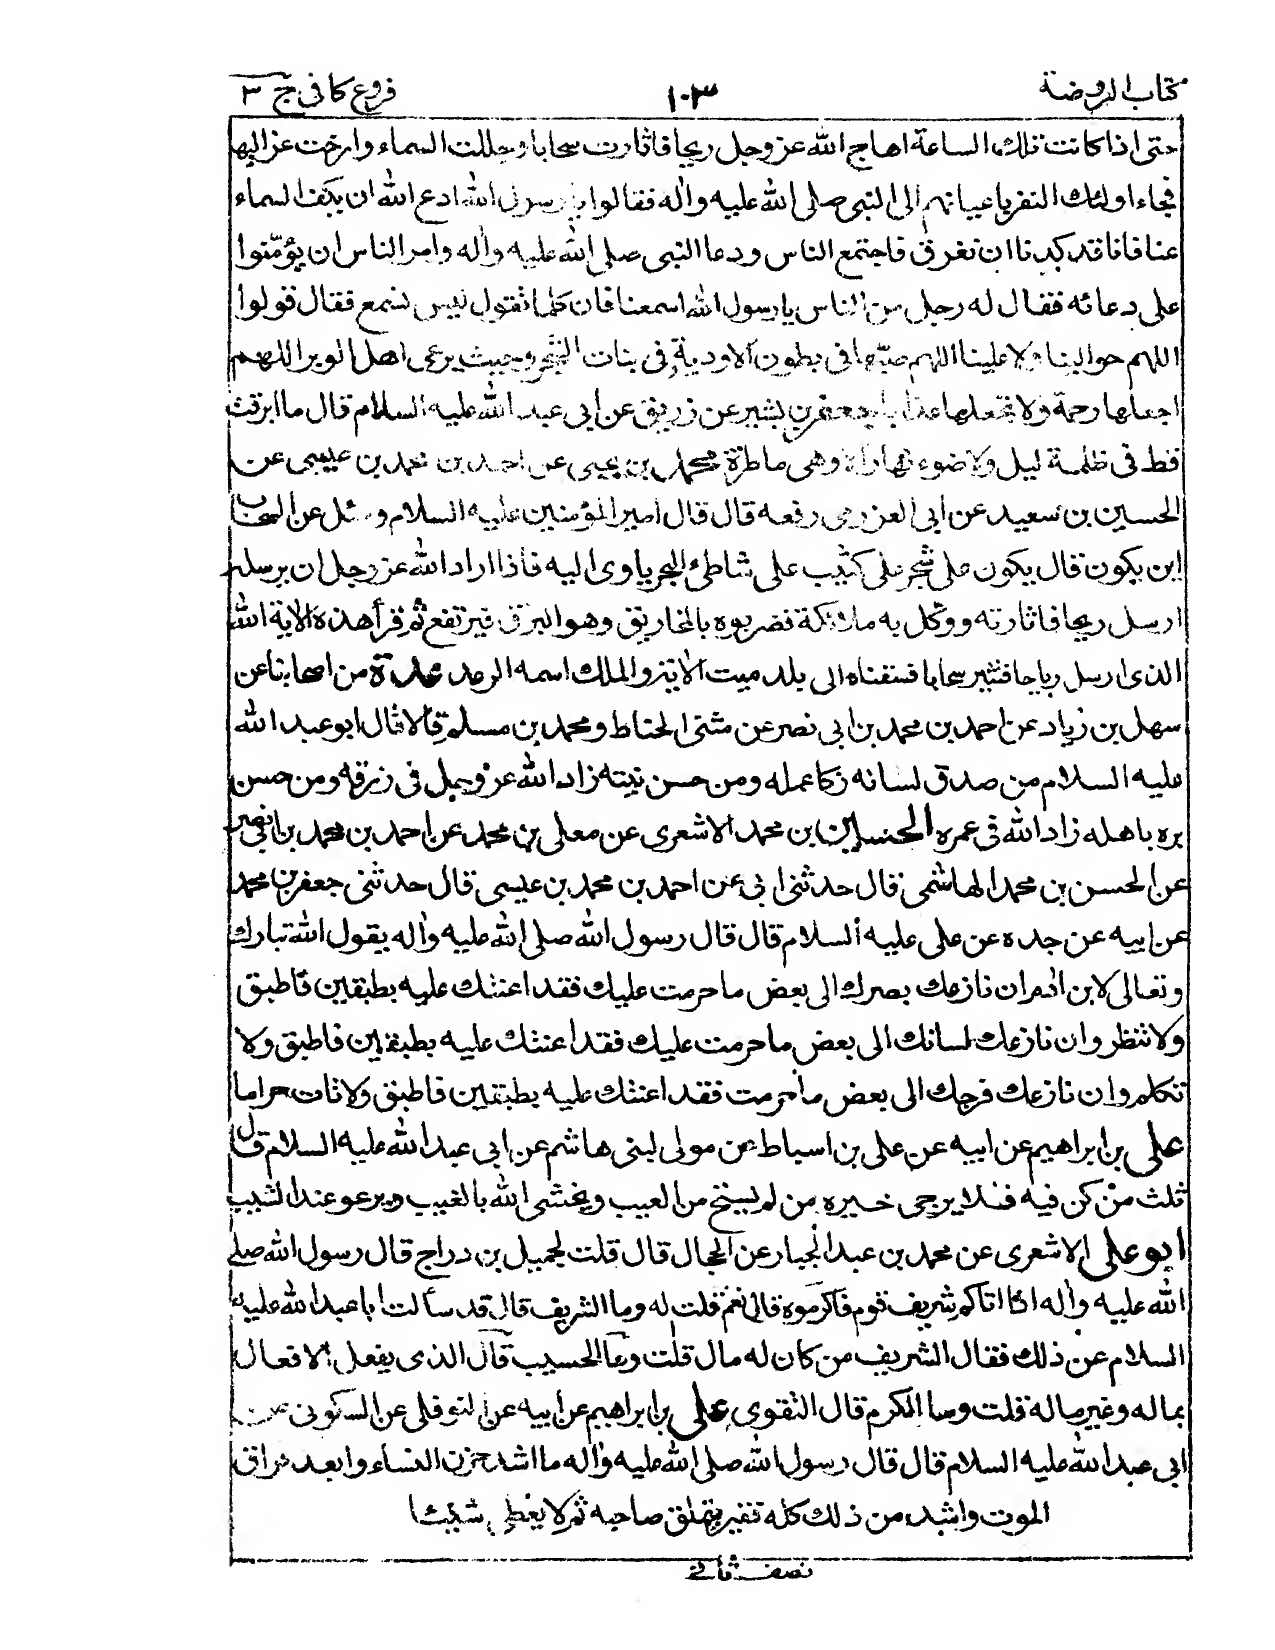 كتاب الروضة ١٠٣ فروع كافى ج ٣
حتى اذا كانت تلك الساعة اهاج الله عز وجل ريحا فاثارت سحابا وجللت السماء وارخت عزاليها
فجاء اولئك النفر باعيانهم الى النبى صلى الله عليه واٰله فقالوا يا رسول الله ادع الله ان يكف السماء
عنا فانا قد كدنا ان نغرق فاجتمع الناس ودعا النبى صلى الله عليه واٰله وامر الناس ان يؤمّنوا
على دعائه فقال له رجل من الناس يا رسول الله اسمعنا فان كلما تقول ليس نسمع فقال قولوا
اللهم حوالينا ولا علينا اللهم صبّها فى بطون الاودية وفى نبات الشجر وحيث يرعى اهل الوبر اللهم
اجعلها رحمة ولا تجعلها عذابا جعفر بن بشير عن زريق عن ابى عبد الله عليه السلام قال ما ابرقت
قط فى ظلمة ليل ولا ضوء نهار الا وهى ماطرة محمد بن يحيى عن احمد بن محمد بن عيسى عن
الحسين بن سعيد عن ابى العزرمى رفعه قال قال امير المؤمنين عليه السلام وسئل عن السحاب
اين يكون قال يكون على شجر على كثيب على شاطئ البحر ياوى اليه فاذا اراد الله عز وجل ان يرسله
ارسل ريحا فاثارته ووكل به ملائكة تضربوه بالمخاريق وهو البرق فيرتفع ثم قرأ هذه الاية الله
الذى ارسل رياحا فتثير سحابا فسقناه الى بلد ميت الاية والملك اسمه الرعد عدة من اصحابنا عن
سهل بن زياد عن احمد بن محمد بن ابى نصر عن مثنى الحناط ومحمد بن مسلم قالا قال ابو عبد الله
عليه السلام من صدق لسانه زكا عمله ومن حسن نيته زاد الله عز وجل فى زرقه ومن حسن
بره باهله زاد الله فى عمره الحسين بن محمد الاشعرى عن معلى بن محمد عن احمد بن محمد بن ابى نصر
عن الحسن بن محمد الهاشمى قال حدثنى ابى عن احمد بن محمد بن عيسى قال حدثنى جعفر بن محمد
عن ابيه عن جده عن على عليه السلام قال قال رسول الله صلى الله عليه واٰله يقول الله تبارك
وتعالى لابن اٰدم ان نازعك بصرك الى بعض ما حرمت عليك فقد اعنتك عليه بطبقين فاطبق
ولا تنظر وان نازعك لسانك الى بعض ما حرمت عليك فقد اعنتك عليه بطبقين فاطبق ولا
تتكلم وان نازعك فرجك الى بعض ما حرمت فقد اعنتك عليه بطبقين فاطبق ولا تات حراما
على بن ابراهيم عن ابيه عن على بن اسباط عن مولى لبنى هاشم عن ابى عبد الله عليه السلام قال
ثلث من كن فيه فلا يرجى خيره من لم يستح من العيب ويخشى الله بالغيب ويرعو عند الشيب
ابو على الاشعرى عن محمد بن عبد الجبار عن الحجال قال قلت لجميل بن دراج قال رسول الله صلى
الله عليه واٰله اذا اتاكم شريف قوم فاكرموه قال نعم قلت له وما الشريف قال قد سألت ابا عبد الله عليه
السلام عن ذلك فقال الشريف من كان له مال قلت وما الحسيب قال الذى يفعل الافعال
بماله وغير ماله قلت وما الكرم قال التقوى على بن ابراهيم عن ابيه عن النوفلى عن السكونى عن
ابى عبد الله عليه السلام قال قال رسول الله صلى الله عليه واٰله ما اشد حزن النساء وابعد فراق
الموت واشد من ذلك كله فقير يتملق صاحبه ثم لا يعطى شيئا
نصف ثانى